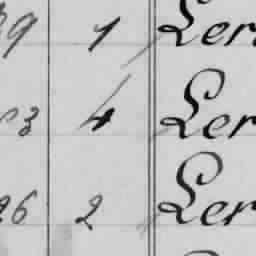 9 1 Ler
3 4 Ler
26 2 Ler